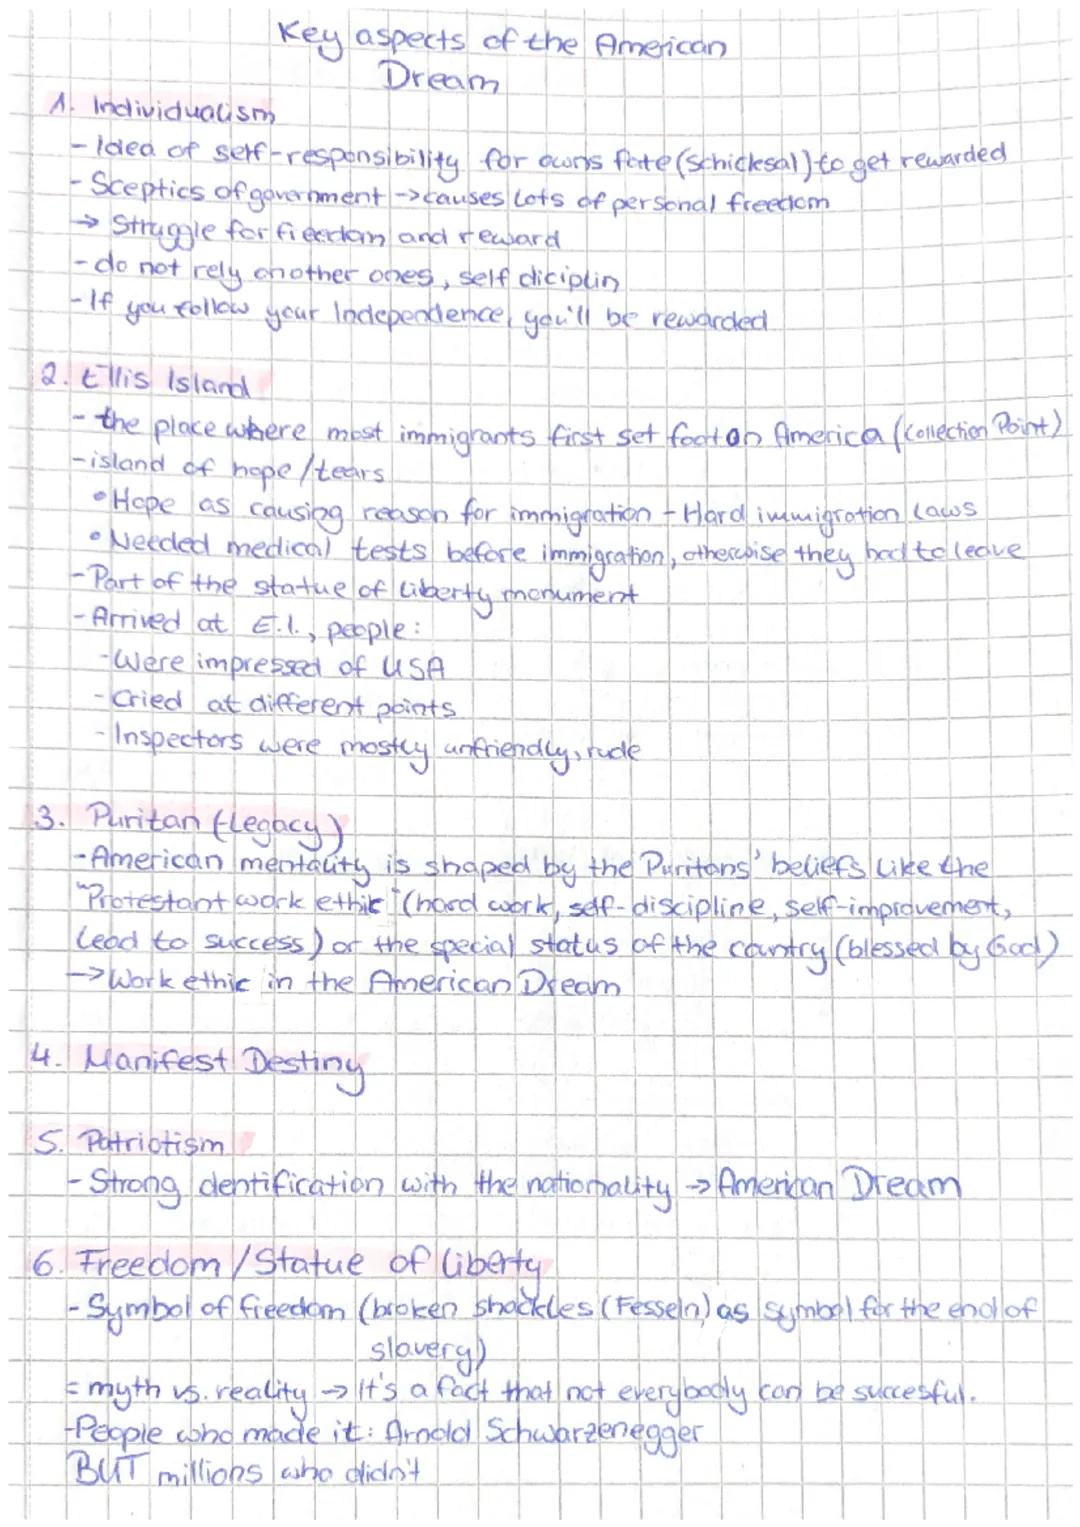 Key aspects of the American
Dream
1. Individualism
- Idea of self-responsibility for owns fate (Schicksal) to get rewarded
- Sceptics of government -> causes lots of personal freedom
-> Struggle for freedom and reward
- do not rely onother ones, self diciplin
- If you follow your Independence, you'll be rewarded
2. Ellis Island
- the place where most immigrants first set foot on America (Collection Point)
- island of hope/tears
• Hope as causing reason for immigration - Hard immigration laws
• Needed medical tests before immigration, otherwise they had to leave
- Part of the statue of liberty monument
- Arrived at E.I., people:
- Were impressed of USA
- Cried at different points
- Inspectors were mostly unfriendly, rude
3. Puritan (-Legacy)
- American mentality is shaped by the Puritans' beliefs like the
"Protestant work ethic" (hard work, self-discipline, self-improvement,
lead to success) or the special status of the country (blessed by God)
-> Work ethic in the American Dream
4. Manifest Destiny
5. Patriotism
- Strong dentification with the nationality -> American Dream
6. Freedom / Statue of liberty
- Symbol of freedom (broken shackles (Fesseln) as symbol for the end of
slavery)
= myth vs. reality -> It's a fact that not everybody can be succesful.
- People who made it: Arnold Schwarzenegger
BUT millions who didn't